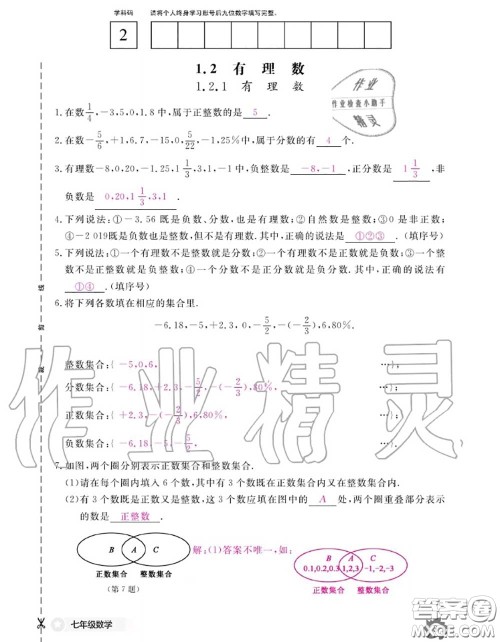 学科码
请将个人终身学习形号后九位数字填写完整。
2
1.2 有 理 数
1.2.1 有 理 数
作业
作业检查小助手
精灵
1.在数1/4,-3,5,0,1.8中,属于正整数的是 5 .
2.在数-5/6,+1,6.7,-15,0,5/22,-1,25%中,属于分数的有 4 个.
3.有理数-8,0,20,-1.25,1 1/3,3,1,-1中,负整数是 -8,-1 ,正分数是 1 1/3 ,非
负数是 0,20,1 1/3,3,1 .
4.下列说法:①-3.56既是负数、分数,也是有理数;②自然数是整数;③0是非正数;
④-2 019既是负数也是整数,但不是有理数.其中,正确的请填 ①②③ .(填序号)
5.下列说法:①一个有理数不是整数就是分数;②一个有理数不是正数就是负数;③一个整
数不是正整数就是负整数;④一个分数不是正分数就是负分数.其中,正确的请填有
①④ .(填序号)
6.将下列各数填在相应的集合里.
-6.18,-5,+2.3,0,-5/2,-(-2/3),6,80%.
整数集合:{ -5,0,6, …};
分数集合:{ -6.18,+2.3,-5/2,-(-2/3),80% …};
正数集合:{ +2.3,-(-2/3),6,80%, …};
负数集合:{ -6.18,-5,-5/2, …}.
7.如图,两个圈分别表示正数集合和整数集合.
(1)请在每个圈内填入6个数,其中有3个数既在正数集合内又在整数集合内.
(2)有3个数既是正数又是整数,这3个数应填在图中的 A 处,两个圈重叠部分表示
的数是 正整数 .
B A C
正数集合 整数集合
(第7题)
解:(1)答案不唯一,如:
B A C
0.1,0.2,0.3 1,2,3 -1,-2,-3
正数集合 整数集合
作业精灵
七年级数学
答案圈
MXQE.COM